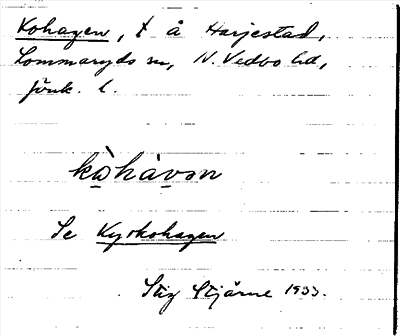 Kohagen, t å Harjestad,
Lommaryds sn, N. Vedbo hd,
Jönk. l.
kòhávən
Se Kyrkohagen
Stig Stjärne 1933.